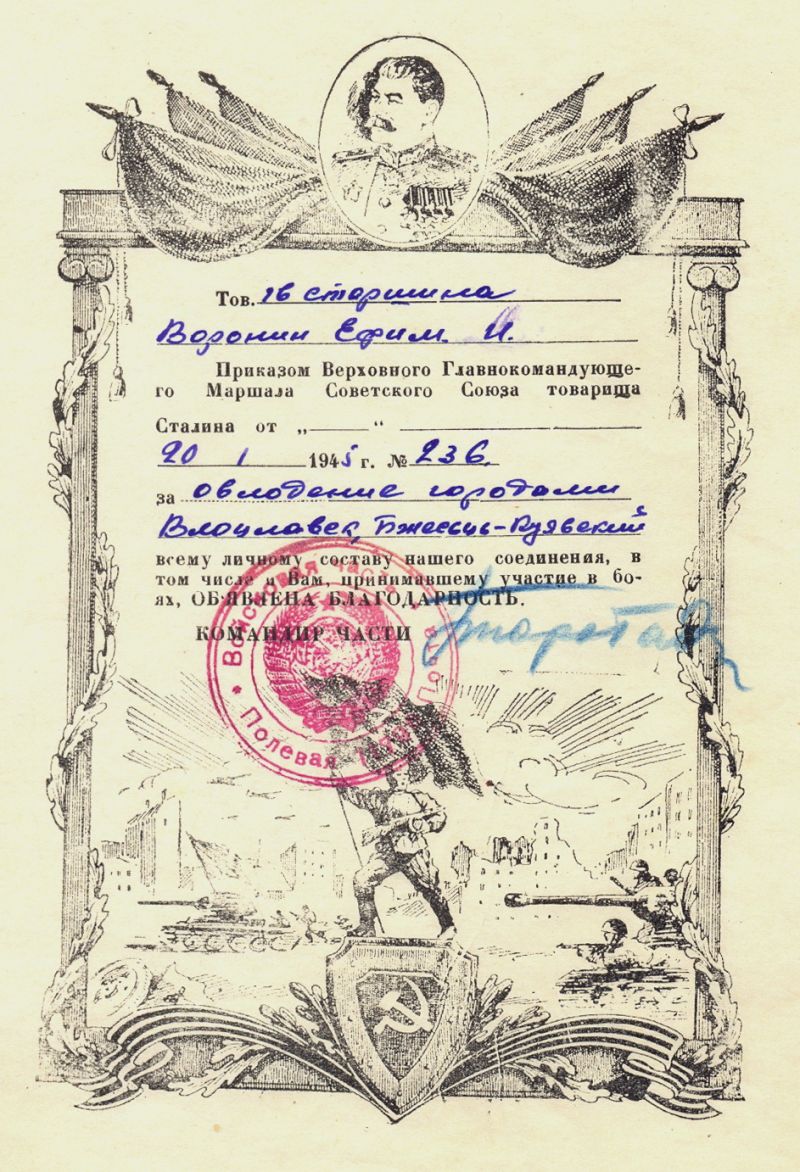 Тов. гв старшина
Воронин Ефим. И.
Приказом Верховного Главнокомандующе-
го Маршала Советского Союза товарища
Сталина от „ “
20 1 1945 г. № 236.
за овладение городами
Влоцлавек, Бжесьць-Куявский
всему личному составу нашего соединения, в
том числе и Вам, принимавшему участие в бо-
ях, ОБ'ЯВЛЕНА БЛАГОДАРНОСТЬ.
КОМАНДИР ЧАСТИ
Войсковая часть
Полевая